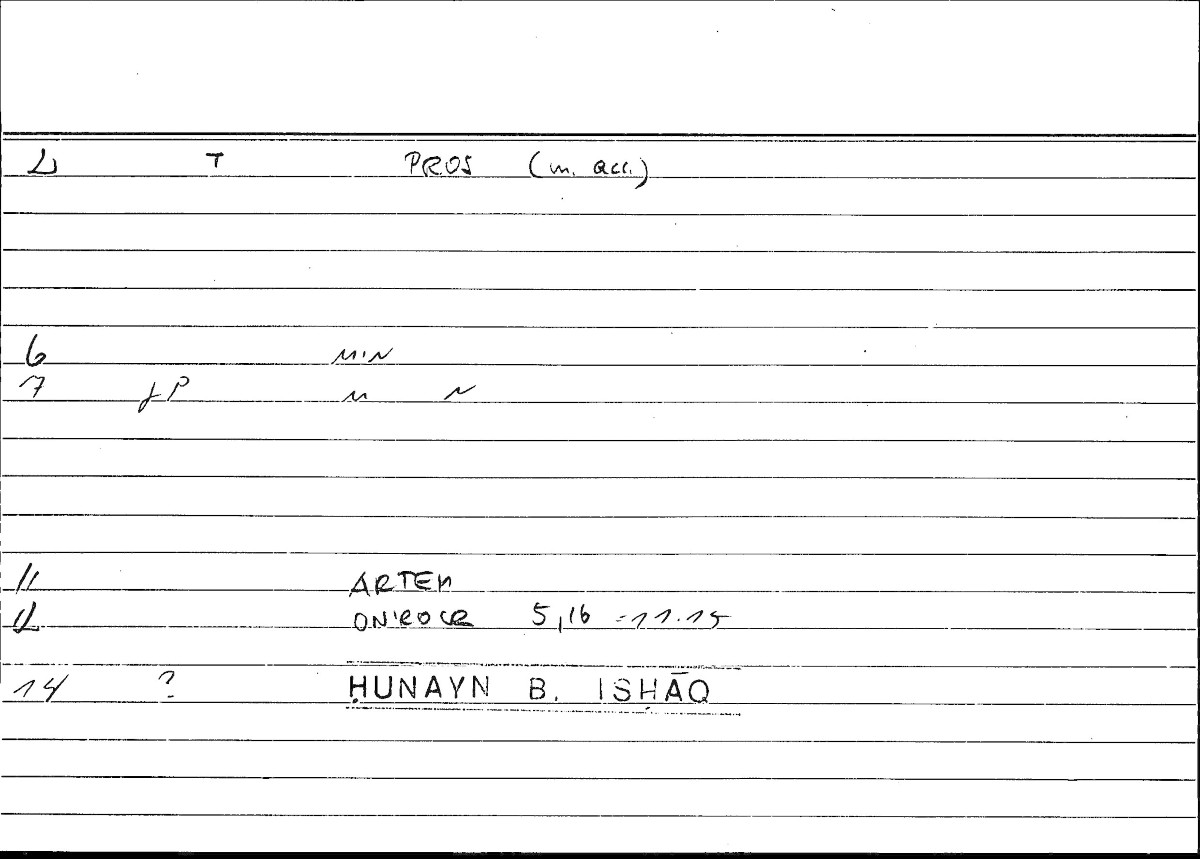 T PROS (m. acc.)
6 MIN
7 fP M N
11 ARTEM
12 ONIROCR 5,16 - 11.15
14 ? ḤUNAYN B. ISḤĀQ